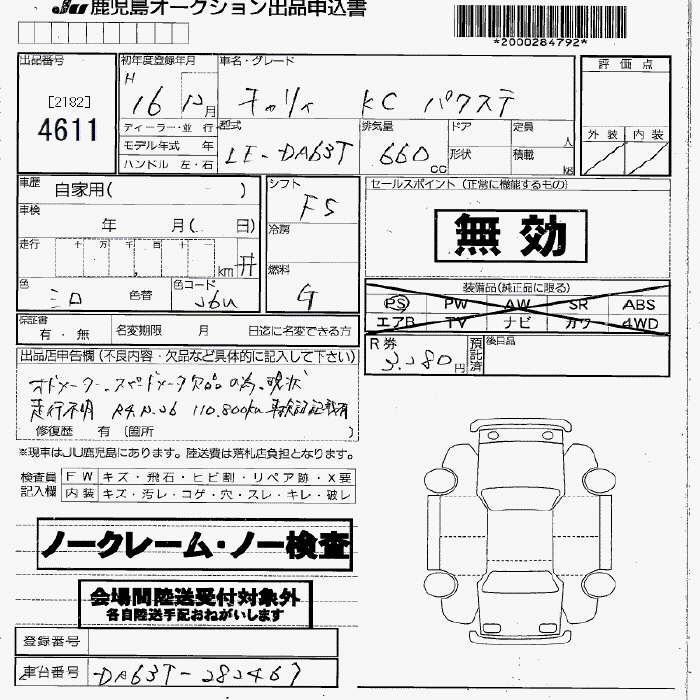 JU 鹿児島オークション出品申込書
*2000284792*
出品番号
[2182]
4611
初年度登録年月
H 16 12月
ディーラー・並 行
モデル年式 年
ハンドル 左・右
車名・グレード
キャリィ KC パワステ
型式
LE-DA63T
排気量
660 cc
ドア
形状
定員
人
積載
kg
評 価 点
外 装 内 装
車歴
自家用( )
車検
年 月( 日)
走行
十 万 千 百 十
km
色
シロ
色替
色コード
26U
シフト
F5
冷房
燃料
G
セールスポイント (正常に機能するもの)
無 効
装備品(純正品に限る)
PS PW AW SR ABS
エアB TV ナビ カワ 4WD
保証書
有 ・ 無
名変期限 月 日迄に名変できる方
R券
預託済
円
後日品
出品店申告欄 (不良内容・欠品など具体的に記入して下さい)
オドメーター、スピードメータ欠品の為、現状
走行不明 R4.12.26 110,800km 車検証記載有
修復歴 有 (箇所 )
※現車はJU鹿児島にあります。陸送費は落札店負担となります。
検査員記入欄
F W キズ・飛石・ヒビ割・リペア跡・X要
内 装 キズ・汚レ・コゲ・穴・スレ・キレ・破レ
ノークレーム・ノー検査
会場間陸送受付対象外
各自陸送手配おねがいします
登録番号
車台番号 DA63T-282467